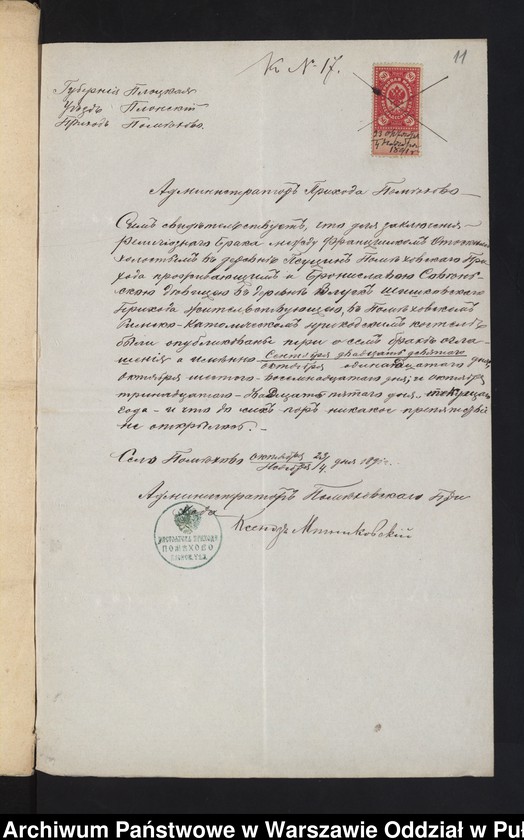 К №17.
11
Губернія Плоцкая
Уѣздъ Плонскій
Приходъ Помѣхово.
23 октября
4 ноября
1891 г
Администраторъ Прихода Помѣхово
Симъ свидѣтельствуетъ, что для заключенія
религіознаго брака между Францишкомъ
холостымъ въ деревнѣ Помѣховскаго При-
хода проживающимъ и Брониславою
скою дѣвицею въ деревнѣ
Прихода жительствующею, въ Помѣховскомъ
Римско-Католическомъ приходскомъ костелѣ
были опубликованы три о семъ бракѣ огла-
шенія а именно Сентября двадцать девятаго
октября одинадцатаго дня,
октября шестого - восемнадцатаго дня; и октября
тринадцатаго - двадцать пятаго дня, текущаго
года - и что до сихъ поръ никакое препятствіе
не открылось. -
Село Помѣхово октября 23/ ноября 4. дня 1891 г.
Администраторъ Помѣховскаго При
хода
Ксендзъ
ПОМѢХОВО
Archiwum Państwowe w Warszawie Oddział w Puł